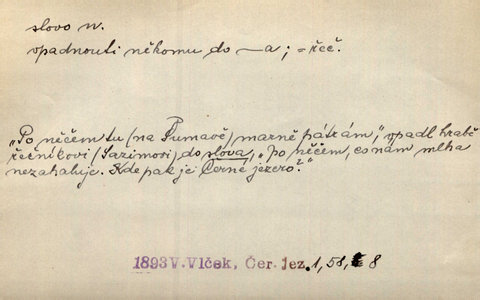 slovo n.
vpadnouti někomu do —a; = řeč.
„Po něčem tu (na Šumavě) marně pátrám,“ vpadl hrabě
řečníkovi (Sázimovi) do slova, „po něčem, co nám mlha
nezahaluje. Kde pak je Černé jezero?“
1893 V. Vlček, Čer. jez. 1, 58, 8